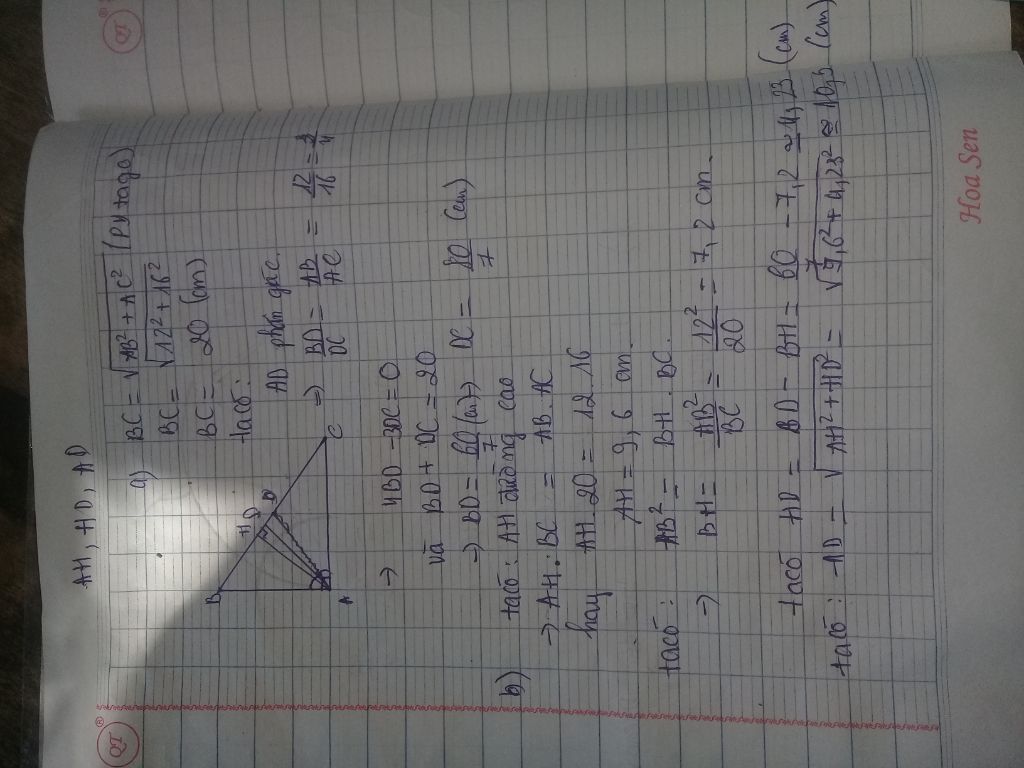 AH, HD, AD
a) BC = √AB² + AC² (Py tago)
BC = √12² + 16²
BC = 20 (cm)
tacó:
AD phân giác
⇒ BD/DC = AB/AC = 12/16 = 3/4
B
H
D
A
C
⇒ 4BD - 3DC = 0
và BD + DC = 20
⇒ BD = 60/7 (cm) DC = 80/7 (cm)
b) tacó: AH đường cao
⇒ AH. BC = AB. AC
hay AH. 20 = 12. 16
AH = 9,6 cm.
tacó: AB² = BH. BC.
⇒ BH = AB²/BC = 12²/20 = 7,2 cm.
tacó HD = BD - BH = 60/7 - 7,2 ≈ 4,23 (cm)
tacó: AD = √AH² + HD² = √9,6² + 4,23² ≈ 10,5 (cm)
Hoa Sen